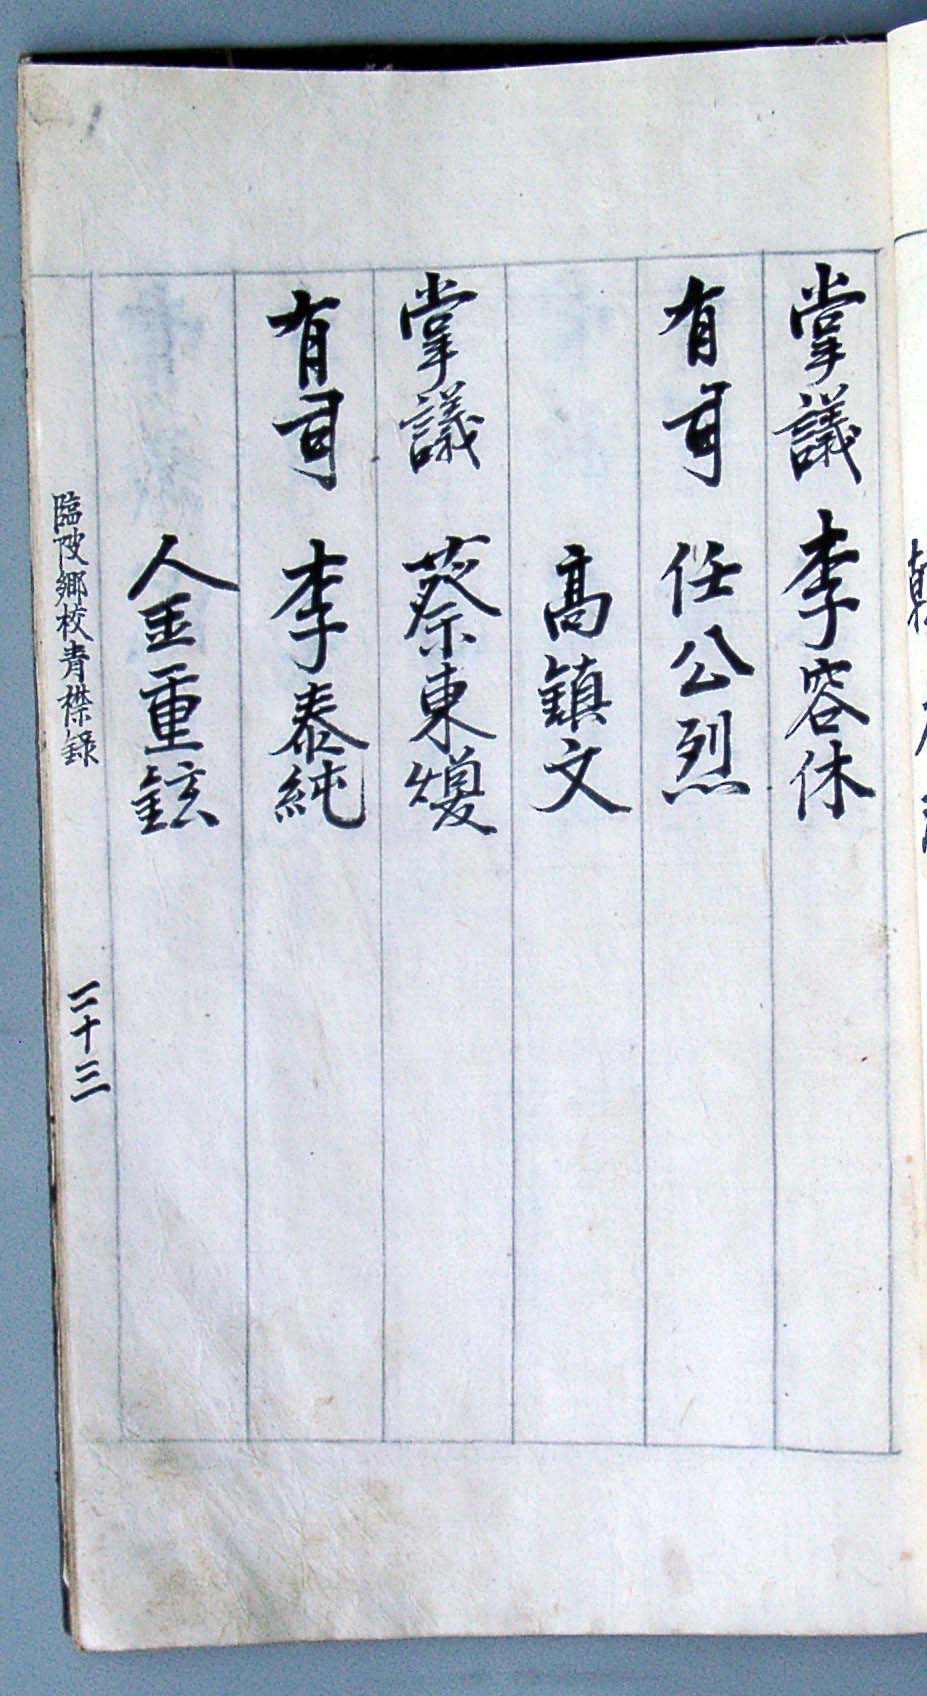 掌議 李容休
有司 任公烈
高鎮文
掌議 蔡東
有司 李泰純
金重鉉
臨陂鄉校青襟錄
二十三